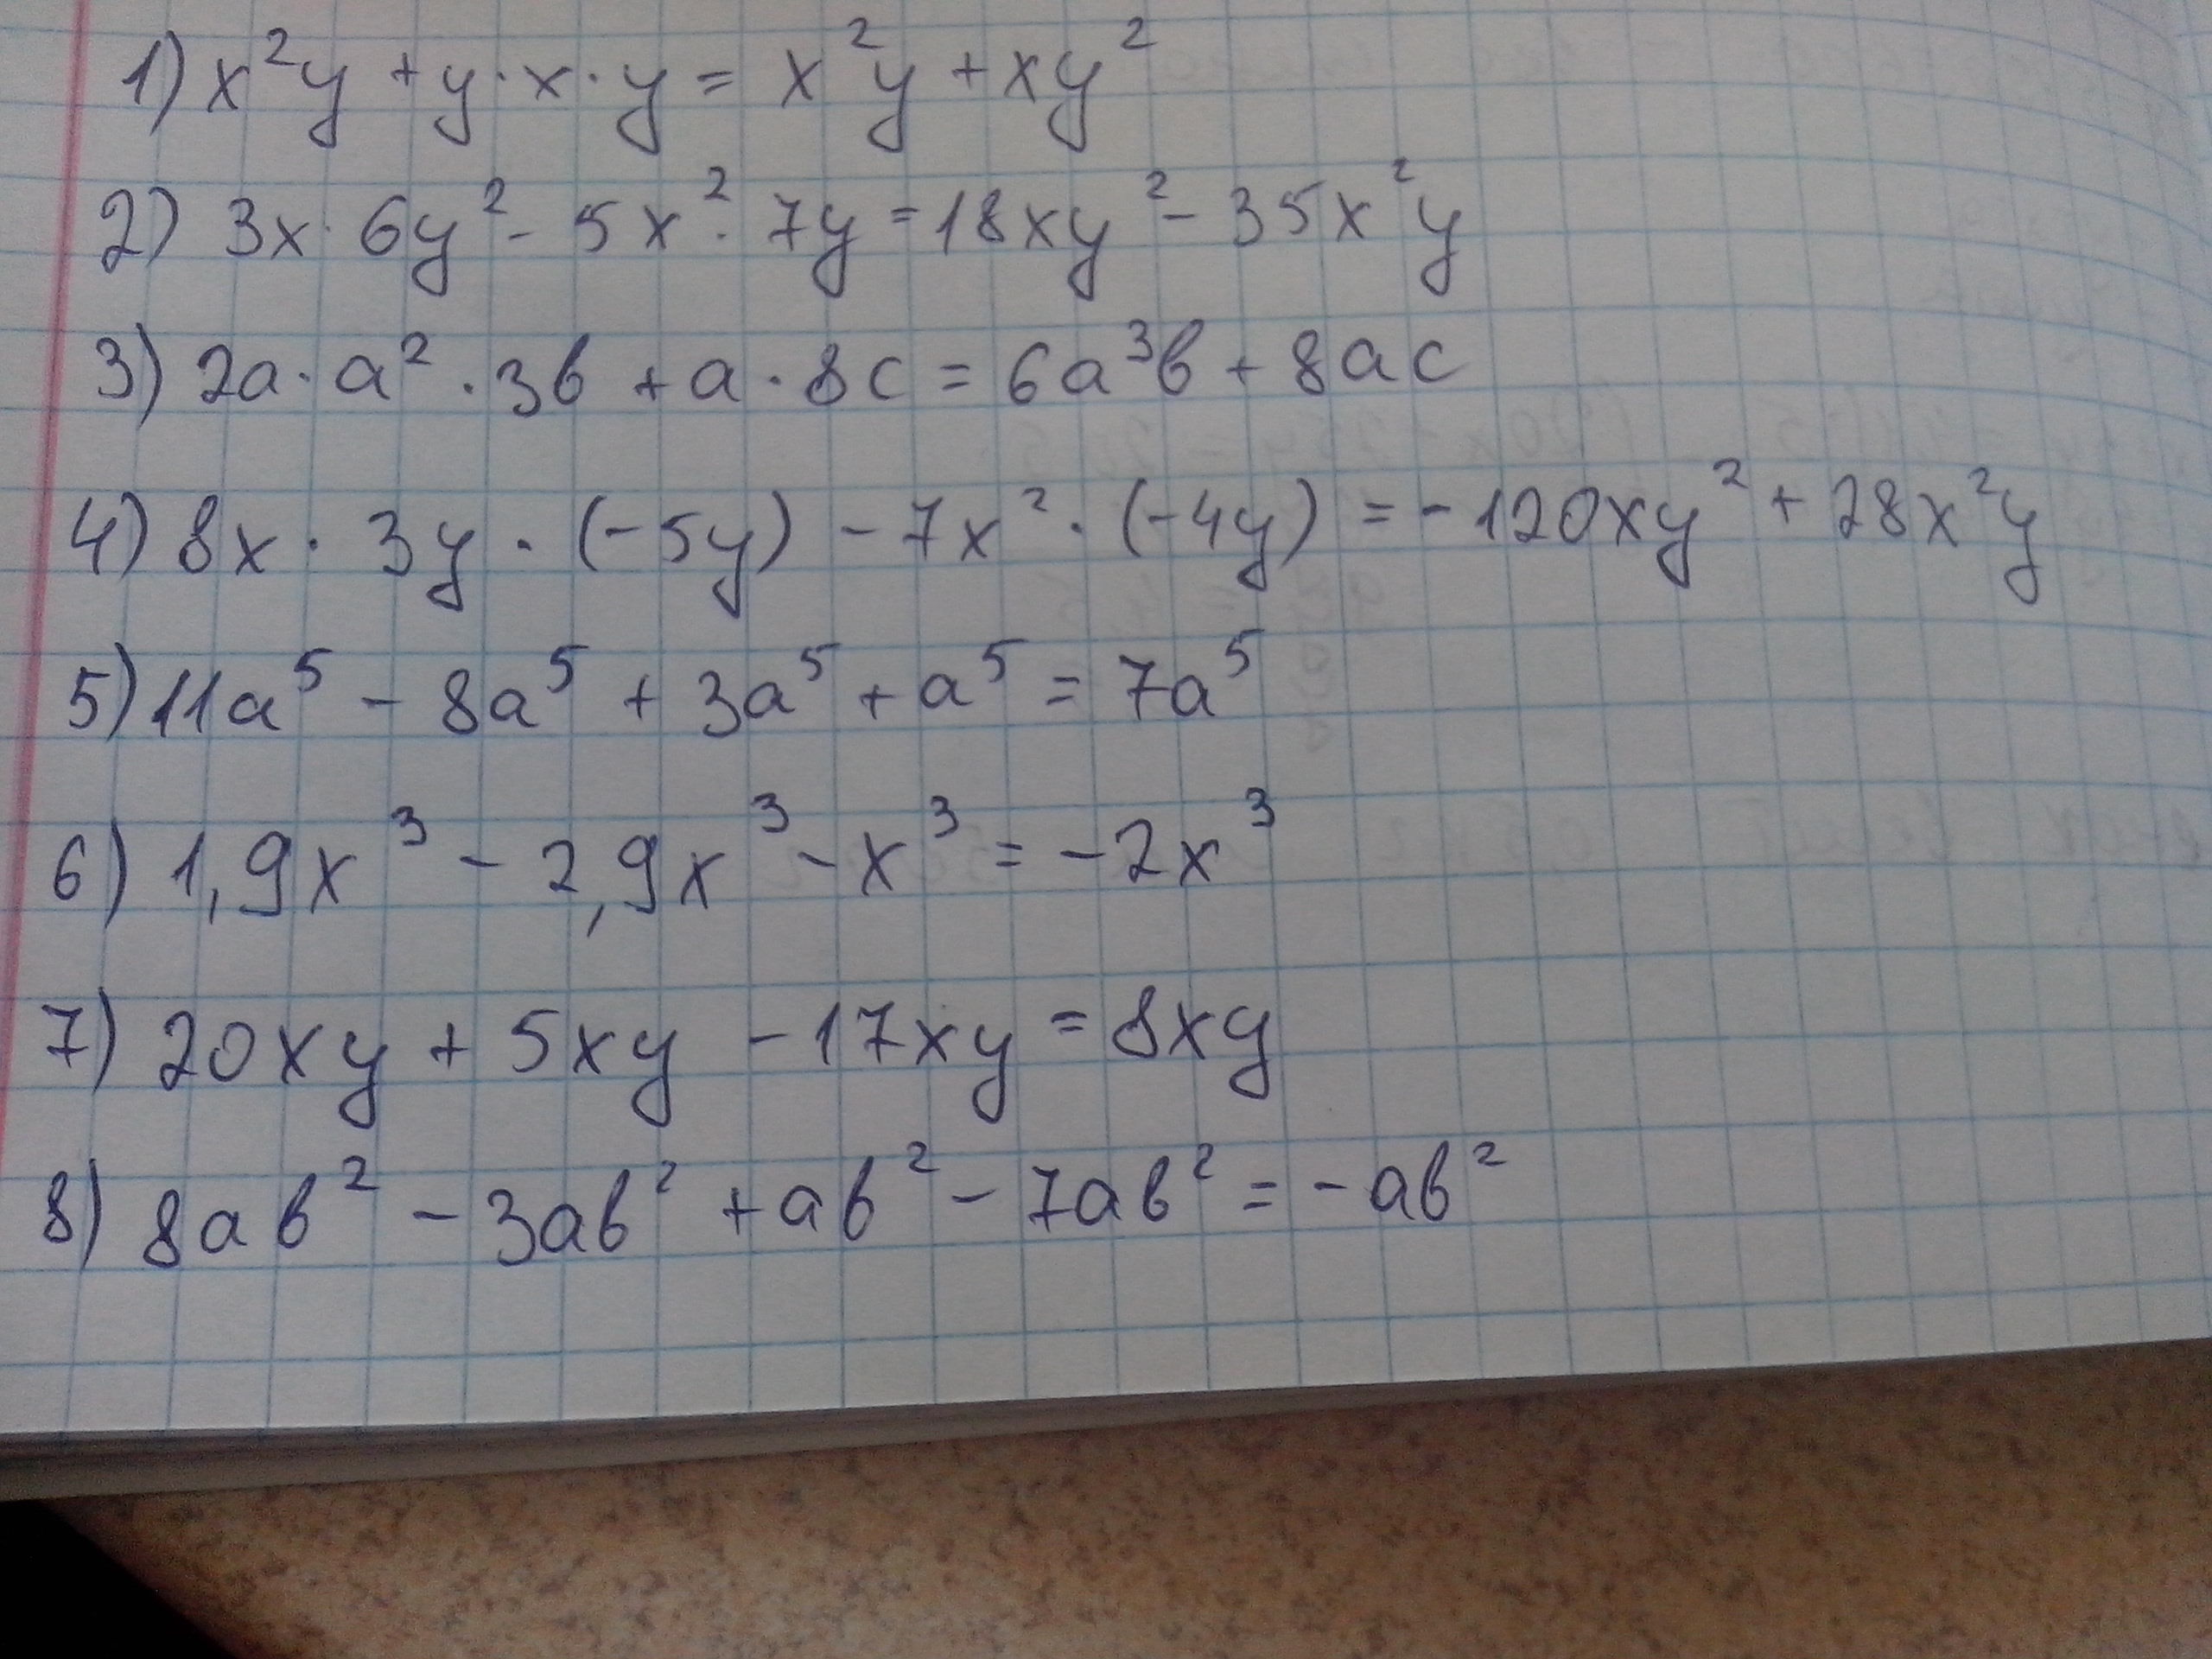 1) x²y + y · x · y = x²y + xy²
2) 3x · 6y² - 5x² · 7y = 18xy² - 35x²y
3) 2a · a² · 3b + a · 8c = 6a³b + 8ac
4) 8x · 3y · (-5y) - 7x² · (-4y) = -120xy² + 28x²y
5) 11a⁵ - 8a⁵ + 3a⁵ + a⁵ = 7a⁵
6) 1,9x³ - 2,9x³ - x³ = -2x³
7) 20xy + 5xy - 17xy = 8xy
8) 8ab² - 3ab² + ab² - 7ab² = -ab²